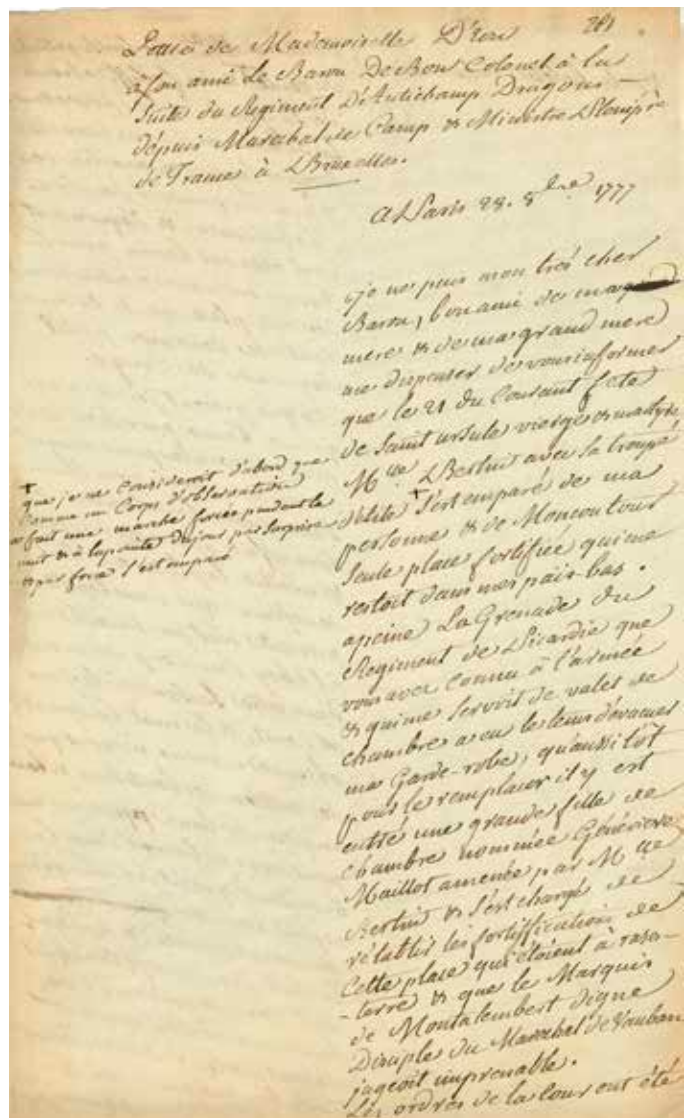 281
Lettre de Mademoiselle D'Eon
à son ami Le Baron De Bon Colonel à la
suite du Regiment D'Autichamp Dragons
depuis Marechal de Camp & Ministre Plenip.re
de France à Bruxelles.
a Paris 28. 8bre 1777
Je ne puis mon trés cher
Baron, bon ami de ma
mere & de ma grand mere
me dispenser de vous informer
que le 21 du Courant fête
de saint ursule vierge & martyre,
Mlle Bertin avec sa troupe
d'élite + s'est emparé de ma
personne & de Moncontour
seule place fortifiée qui me
restoit dans mes païs-bas.
apeine La Grenade du
Regiment de Picardie que
vous avez connu à l'armée
& qui me servoit de valet de
chambre a eu le tems d'évacuer
ma Garde-robe, qu'aussitôt
pour le remplacer il y est
entré une grande fille de
chambre nommée Généviève
Maillot amenée par Mlle
Bertin & s'est chargé de
rétablir les fortiffications de
Cette place qui étoient à rase-
-terre & que le Marquis
de Montalembert digne
Disciple du Marechal de Vauban
jugeoit imprenable.
Les ordres de la Cour ont été
+
que je ne Considerois d'abord que
Comme un Corps d'observation
a fait une marche forcée pendant la
nuit & à la pointe du jour par surprise
& par force s'est emparé